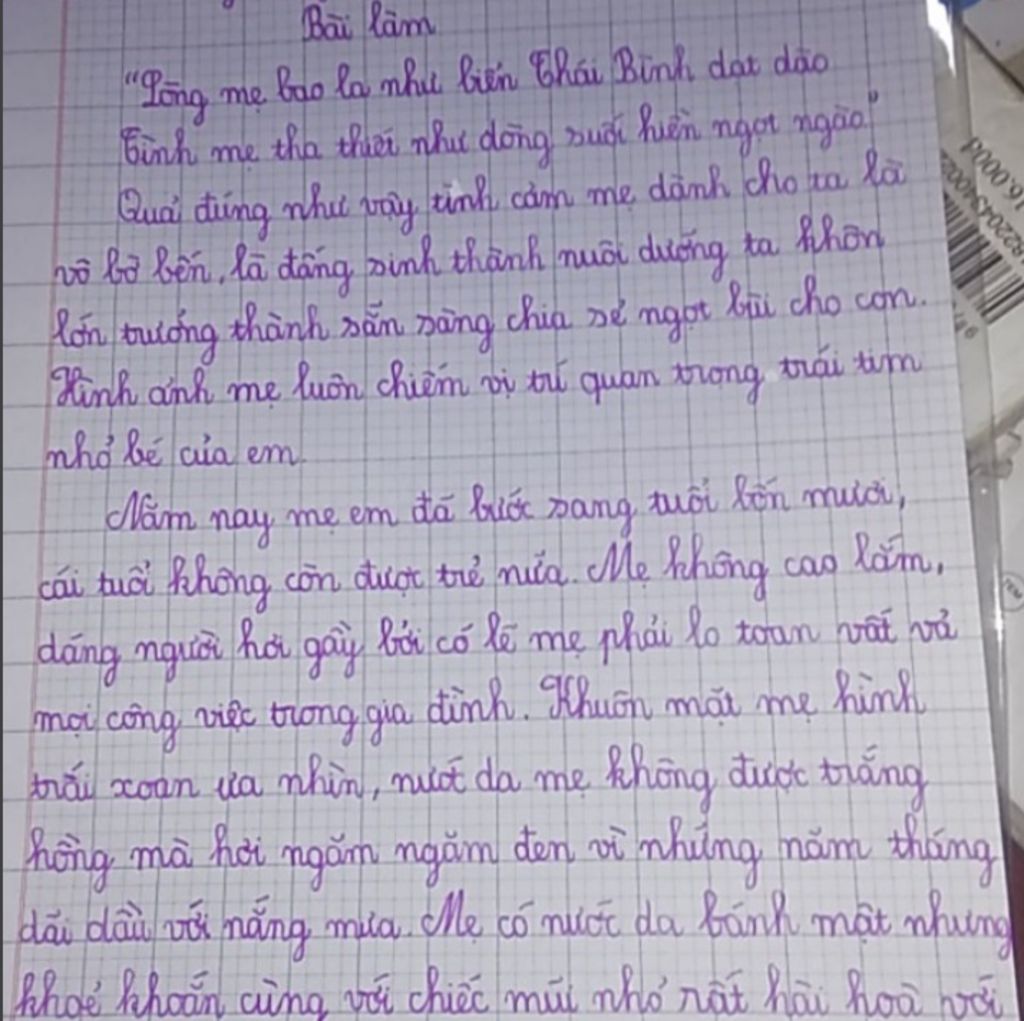 Bài làm
"Lòng mẹ bao la như biển Thái Bình dạt dào
Tình mẹ tha thiết như dòng suối hiền ngọt ngào"
Quả đúng như vậy tình cảm mẹ dành cho ta là
vô bờ bến, là đấng sinh thành nuôi dưỡng ta khôn
lớn trưởng thành sẵn sàng chia sẻ ngọt bùi cho con.
Hình ảnh mẹ luôn chiếm vị trí quan trong trái tim
nhỏ bé của em
Năm nay mẹ em đã bước sang tuổi bốn mươi,
cái tuổi không còn được trẻ nữa. Mẹ không cao lắm,
dáng người hơi gầy bởi có lẽ mẹ phải lo toan vất vả
mọi công việc trong gia đình. Khuôn mặt mẹ hình
trái xoan ưa nhìn, nước da mẹ không được trắng
hồng mà hơi ngăm ngăm đen vì những năm tháng
dãi dầu với nắng mưa. Mẹ có nước da bánh mật nhưng
khoẻ khoắn cùng với chiếc mũi nhỏ rất hài hoà với
16.000đ